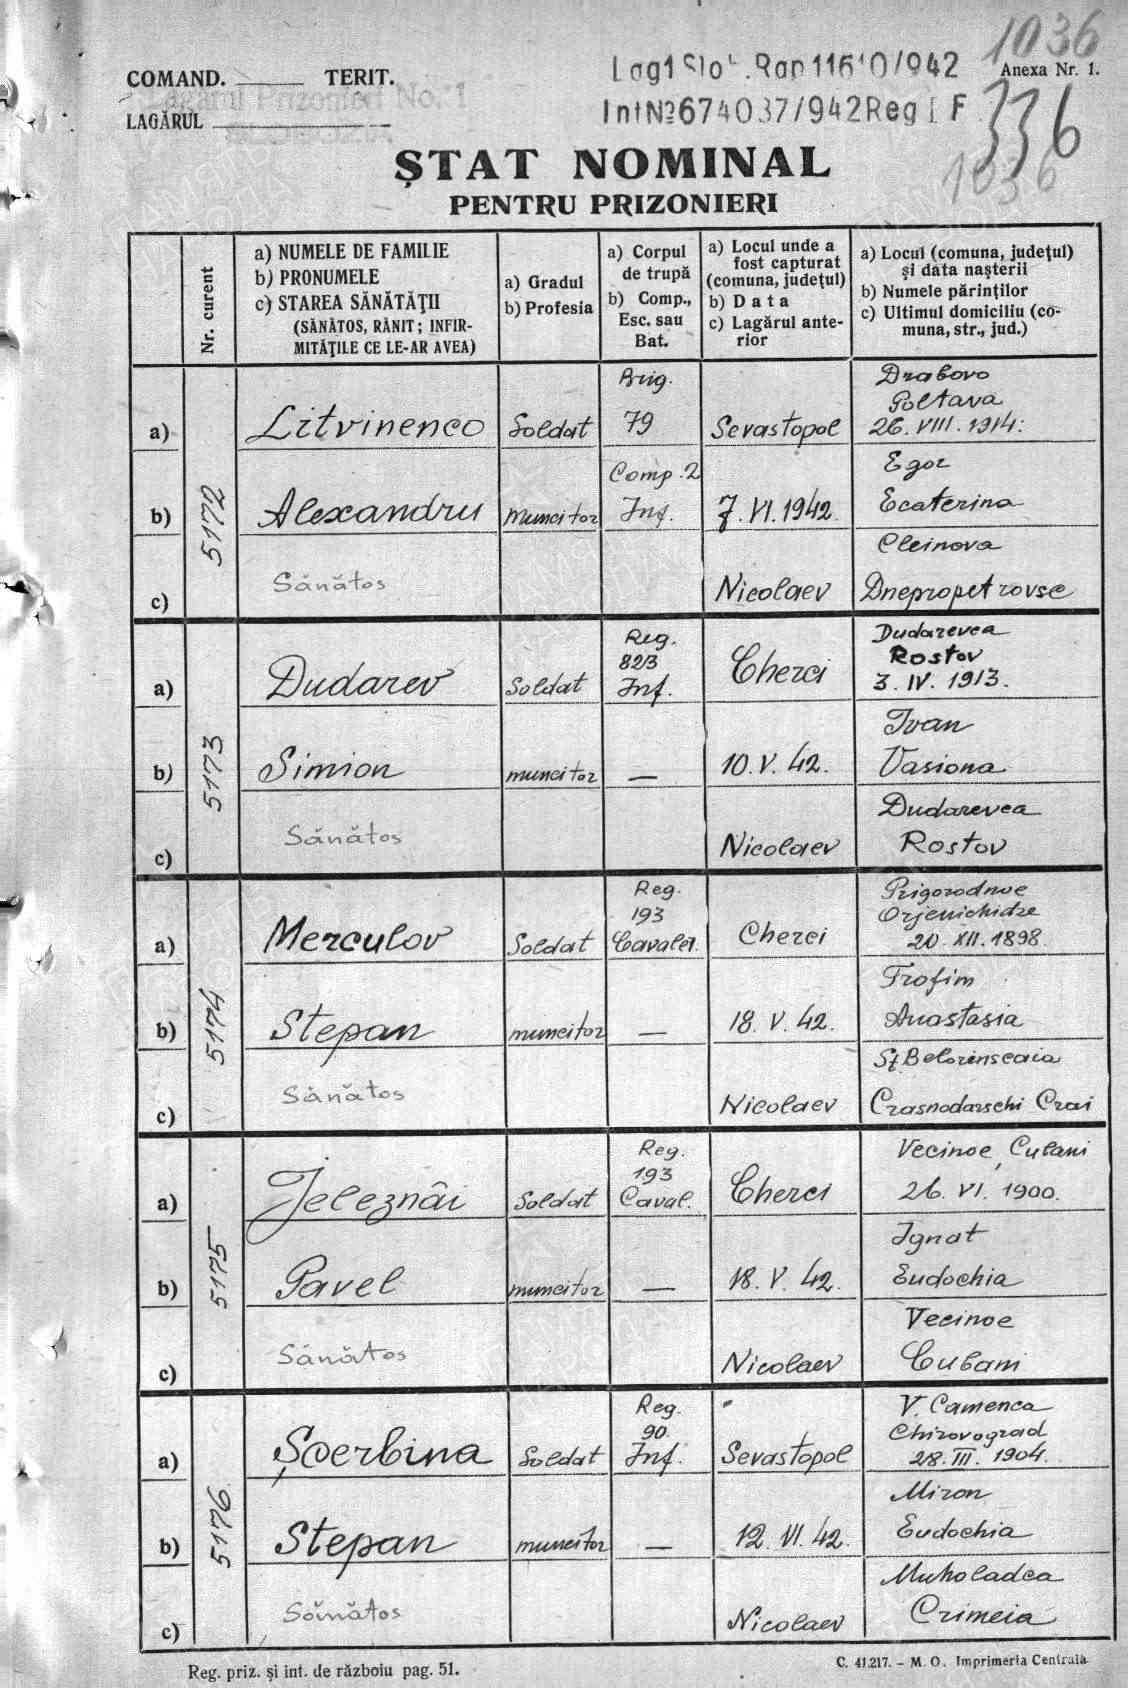 1036
COMAND. ______ TERIT.
Lagărul Prizonieri No. 1
LAGĂRUL
Anexa Nr. 1.
Int № 674037/942 Reg I F
336
1036
ȘTAT NOMINAL
PENTRU PRIZONIERI
Nr. curent
a) NUMELE DE FAMILIE
b) PRONUMELE
c) STAREA SĂNĂTĂȚII
(SĂNĂTOS, RĂNIT; INFIR-
MITĂȚILE CE LE-AR AVEA)
a) Gradul
b) Profesia
a) Corpul
de trupă
b) Comp.,
Esc. sau
Bat.
a) Locul unde a
fost capturat
(comuna, județul)
b) Data
c) Lagărul ante-
rior
a) Locul (comuna, județul)
și data nașterii
b) Numele părinților
c) Ultimul domiciliu (co-
muna, str., jud.)
5172
a) Litvinenco Soldat Brig. 79 Sevastopol Drabovo
Poltava
26. VIII. 1914.
b) Alexandru muncitor Comp. 2 Inf. 7. VI. 1942. Egor
Ecaterina
c) Sănătos Nicolaev Cleinova
Dnepropetrovsc
5173
a) Dudarev Soldat Reg. 823 Inf. Cherci Dudarevca
Rostov
3. IV. 1913.
b) Simion muncitor — 10. V. 42. Ivan
Vasiona
c) Sănătos Nicolaev Dudarevca
Rostov
5174
a) Merculov Soldat Reg. 193 Cavaler. Cherci Prigorodnoe
Orjenichidze
20. XII. 1898.
b) Stepan muncitor — 18. V. 42. Trofim
Anastasia
c) Sănătos Nicolaev
Crasnodarschi Crai
5175
a) Jeleznâi Soldat Reg. 193 Caval. Cherci Vecinoe, Cubani
26. VI. 1900.
b) Pavel muncitor — 18. V. 42. Ignat
Eudochia
c) Sănătos Nicolaev Vecinoe
Cubani
5176
a) Șcerbina Soldat Reg. 90. Inf. Sevastopol V. Camenca
Chirovograd
28. III. 1904.
b) Stepan muncitor — 12. VI. 42. Miron
Eudochia
c) Sănătos Nicolaev Muholadca
Crimeia
Reg. priz. și int. de războiu pag. 51.
C. 41.217. – M. O. Imprimeria Centrală